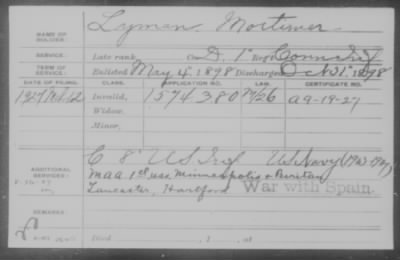 NAME OF SOLDIER: Lyman, Mortimer
SERVICE: Late rank, Co. D, 1" Reg't Conn. Inf
TERM OF SERVICE: Enlisted May 4, 1898 Discharged Oct 31", 1898
DATE OF FILING. CLASS. APPLICATION NO. LAW. CERTIFICATE NO.
1927 Invalid, 1574380 A9-19-27
Widow,
Minor,
ADDITIONAL SERVICES: C 8" U S Inf U S Navy
maa 1st uss. Minneapolis & Puritan
Lancaster, Hartford War with Spain.
REMARKS:
Died , 1 , at